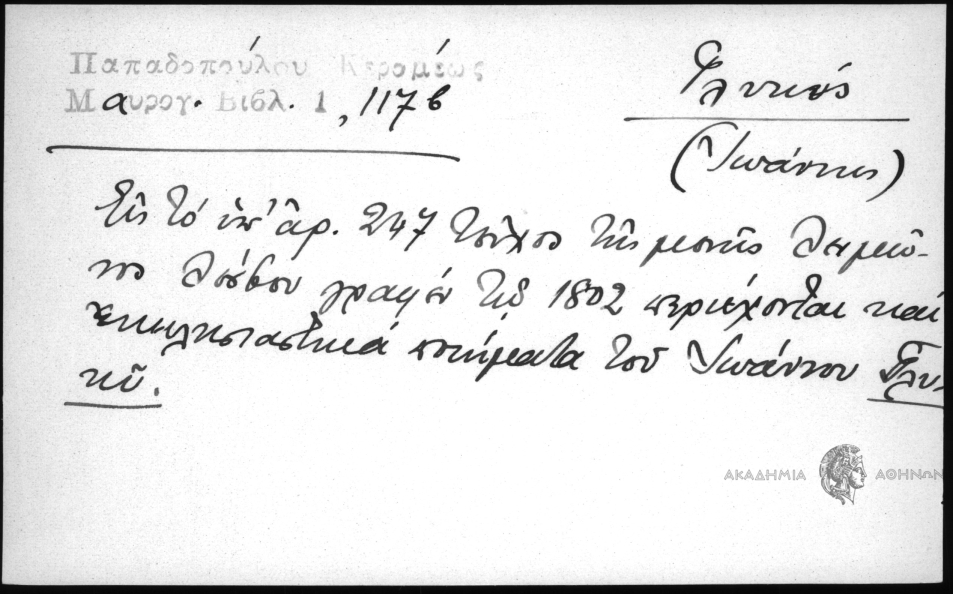 Παπαδοπούλου Κεραμέως
Μαυρογ. Βιβλ. 1, 117 β
Γλυκύς
(Ἰωάννης)
Εἰς τό ὑπ' ἀρ. 247 τεῦχος τῆς μονῆς Λειμῶ-
νος Λέσβου γραφέν τῷ 1802 περιέχονται καί
ἐκκλησιαστικά ποιήματα τοῦ Ἰωάννου Γλυ-
κῦ.
ΑΚΑΔΗΜΙΑ ΑΘΗΝΩΝ